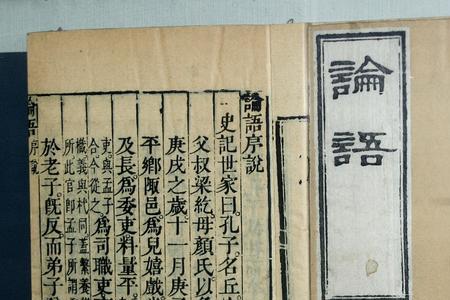 論語
論語序說
史記世家曰孔子名丘
父叔梁紇母顏氏以
庚戌之歲十一月庚
平鄉陬邑爲兒嬉戲
及長爲委吏料量平
吏與孟子
合今從之
爲司職吏
樴義與杙同蓋繫養
所此官即孟子所謂
於老子既反而弟子
論語序說